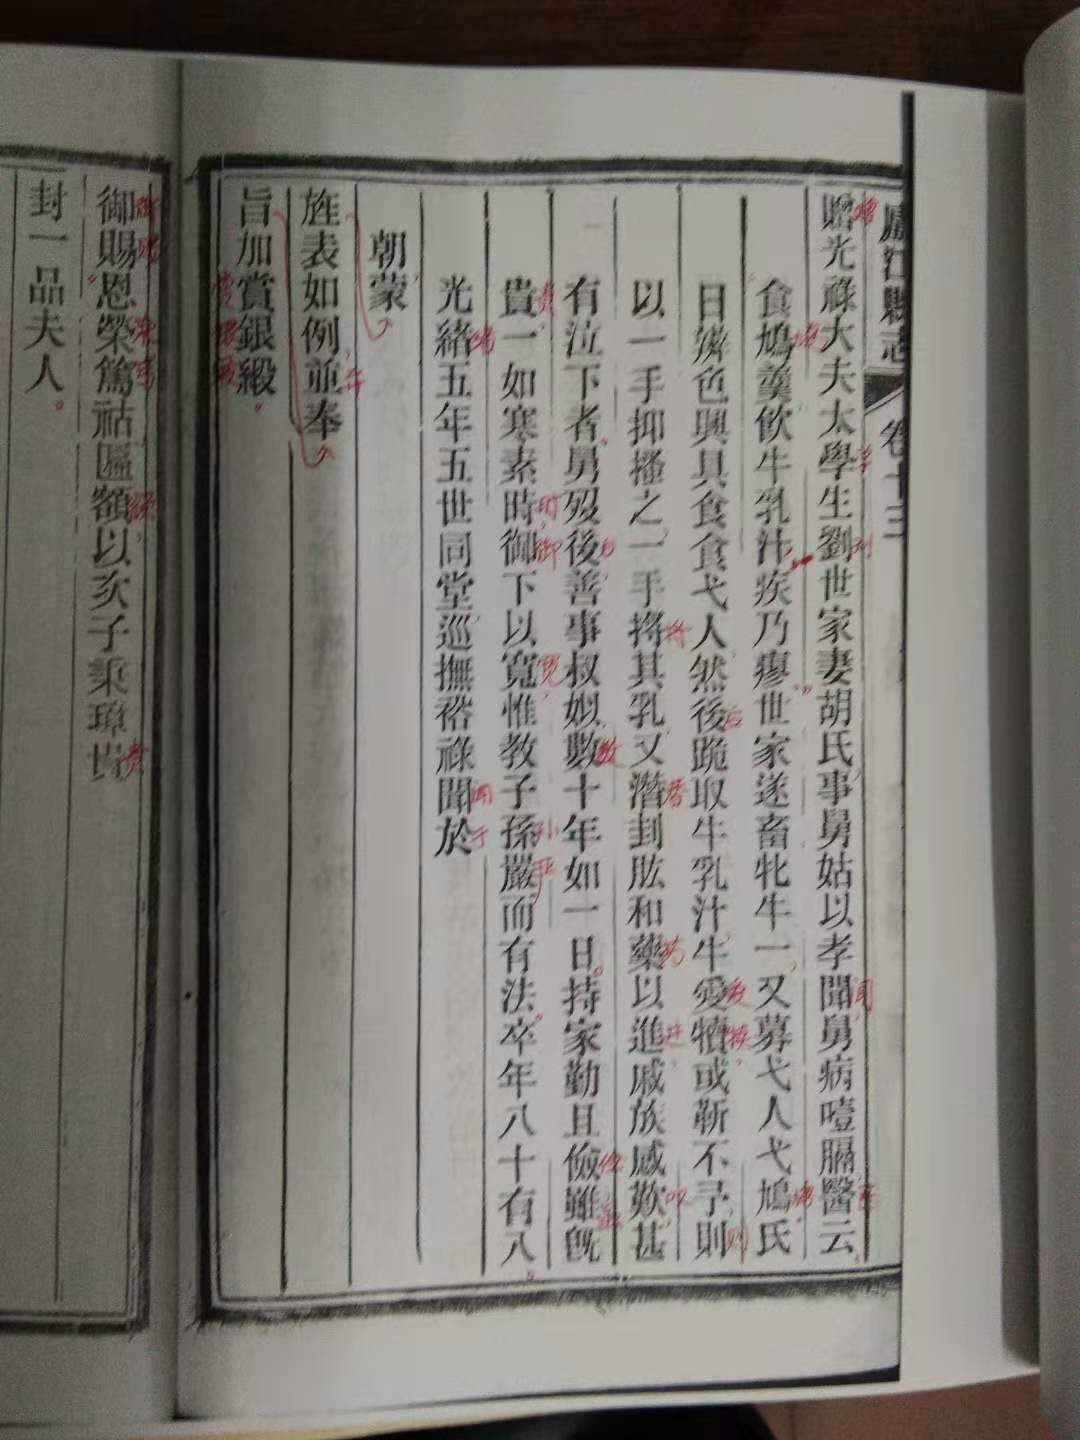 廬江縣志 卷十三
贈光祿大夫太學生劉世家妻胡氏事舅姑以孝聞舅病噎膈醫云
食鳩羹飲牛乳汁疾乃瘳世家遂畜牝牛一又募弋人弋鳩氏
日濟色興具食食弋人然後跪取牛乳汁牛愛犢或靳不予則
以一手抑搔之一手將其乳又潛刲肱和藥以進戚族感歎甚
有泣下者舅歿後善事叔姒數十年如一日持家勤且儉雖既
貴一如寒素時御下以寬惟教子孫嚴而有法卒年八十有八
光緒五年五世同堂巡撫裕祿聞於
朝蒙
旌表如例並奉
旨加賞銀緞
御賜恩榮篤祜匾額以亥子秉璋貴
封一品夫人